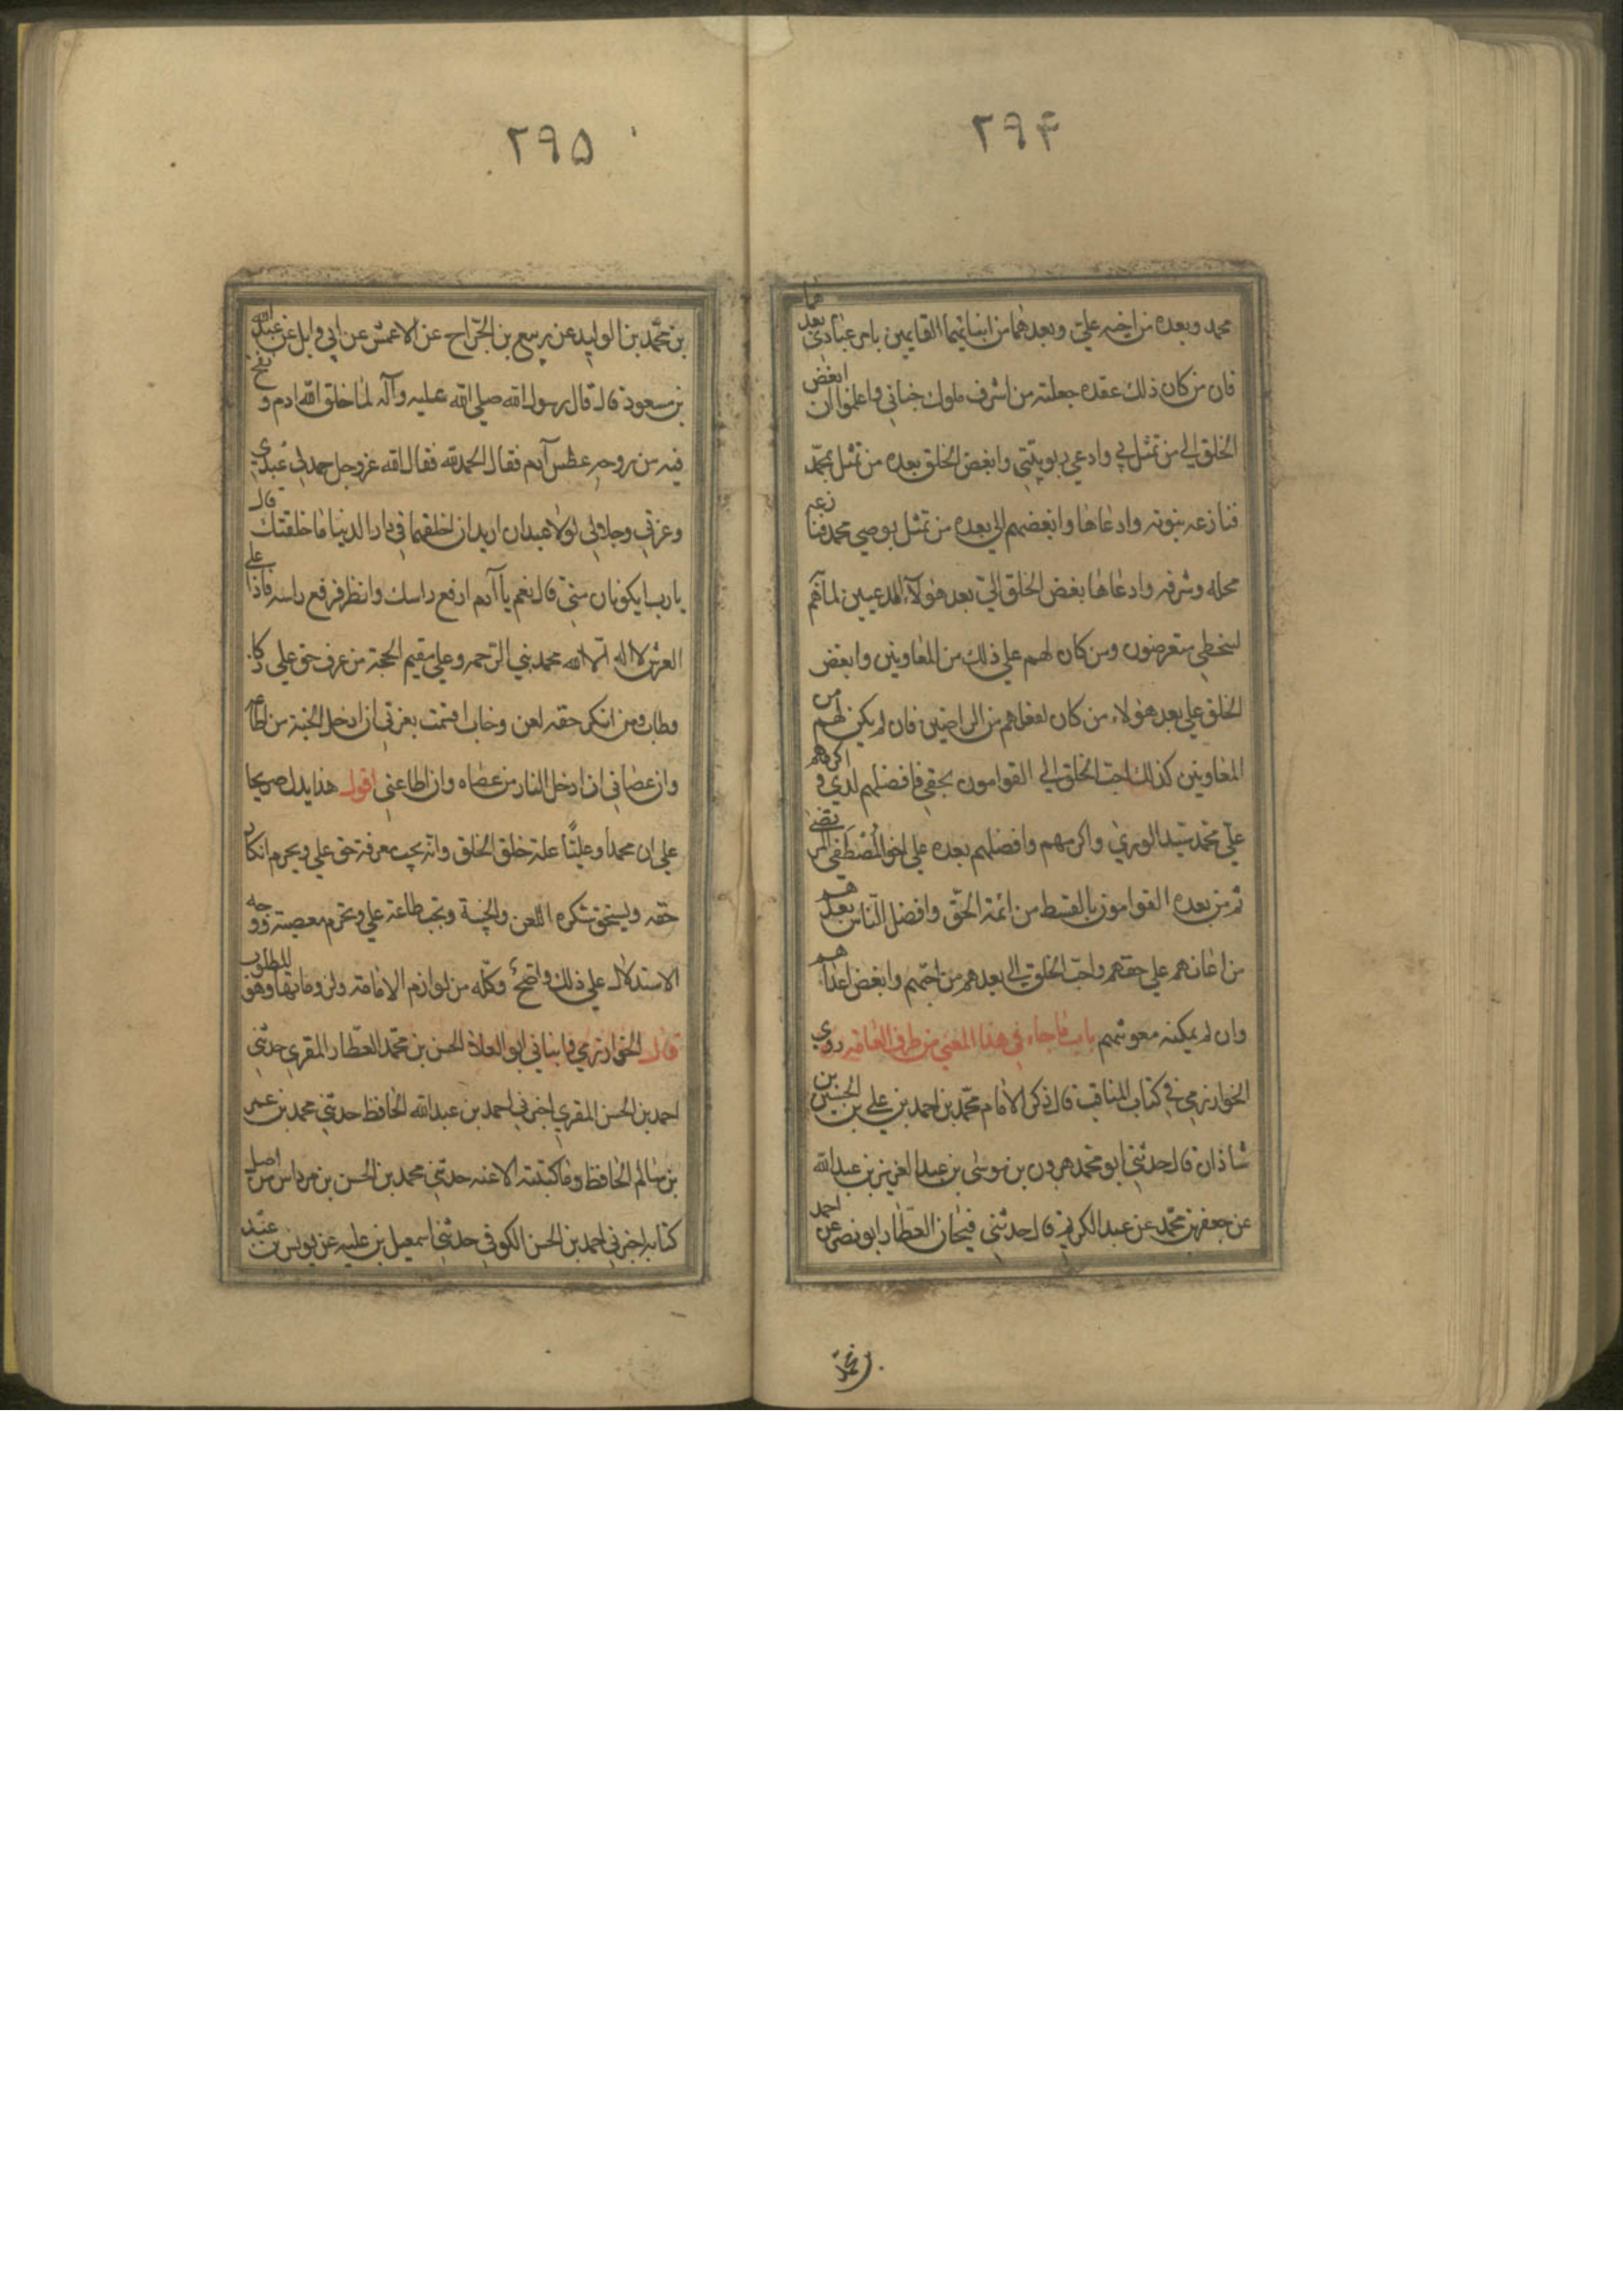 ٢٩۴
محمد وبعده من اخيه علي وبعدهما من ابنائهما القايمين بامر عبادي بعدهما
فان من كان ذلك عقده جعلته من اشرف ملوك جناني واعلموا ان ابغض
الخلق الي من تمثل بي وادعي ربوبيتي وابغض الخلق بعده من تمثل بمحمد
فنازعه بنبوته وادعاها وابغضهم الي بعده من تمثل بوصي محمد فنازعه
محله وشرفه وادعاها بغض الخلق الي بعد هولاء المدعيين لما هم
لسخطي متعرضون ومن كان لهم علي ذلك من المعاونين وابغض
الخلق علي بعد هولاء من كان لفعلهم من الراضين فان لم يكن لهم من
المعاونين كذلك احب الخلق الي القوامون بحقي فافضلهم لدي واكرمهم
علي محمد سيد الوري واكرمهم وافضلهم بعده علي اخو المصطفي المرتضي
ثم من بعده القوامون بالقسط من ائمة الحق وافضل الناس بعدهم
من اعانهم علي حقهم واحب الخلق الي بعدهم من احبهم وابغض اعداءهم
وان لم يمكنه معونتهم باب ما جاء في هذا المعني من طرق العامة روي
الخوارزمي في كتاب المناقب قال ذكر الامام محمد بن احمد بن علي بن الحسين بن
شاذان قال حدثني ابو محمد هرون بن موسي بن عبد العزيز بن عبد الله
عن جعفر بن محمد عن عبد الكريم قال حدثني فيحان العطار ابو نصر عن احمد
بن محمد
٢٩۵
بن محمد بن الوليد عن ربيع بن الجراح عن الاعمش عن ابي وايل عن عبد الله
بن مسعود قال قال رسول الله صلي الله عليه وآله لما خلق الله ادم ونفخ
فيه من روحه عطس آدم فقال الحمد لله فقال الله عز وجل حمدني عبدي
وعزتي وجلالي لولا عبدان اريد ان اخلقهما في دار الدنيا ما خلقتك قال
يا رب ايكونان مني قال نعم يا آدم ارفع راسك وانظر فرفع راسه فاذا علي
العرش لا اله الا الله محمد نبي الرحمه وعلي مقيم الحجة من عرف حق علي زكا
وطاب ومن انكر حقه لعن وخاب اقسمت بعزتي ان ادخل الجنة من اطاعه
وان عصاني ان ادخل النار من عصاه وان اطاعني اقول هذا يدل صريحا
علي ان محمدا وعليًا علة خلق الخلق وانه يجب معرفة حق علي ويحرم انكار
حقه ويستحق منكره اللعن والخيبة وتجب طاعة علي وتحرم معصيته ووجه
الاستدلال علي ذلك واضح وكله من لوازم الامامة ولزوماتها وهو المطلوب
قال الخوارزمي وانباني ابو العلاء الحسن بن محمد العطار المقري حدثني
احمد بن الحسن المقري اخبرني احمد بن عبد الله الحافظ حدثني محمد بن عمر
بن سالم الحافظ وما كتبته الا عنه حدثني محمد بن الحسن بن مرداس من اصل
كتابه اخبرني احمد بن الحسن الكوفي حدثني اسمعيل بن عليه عن يونس بن عبيد